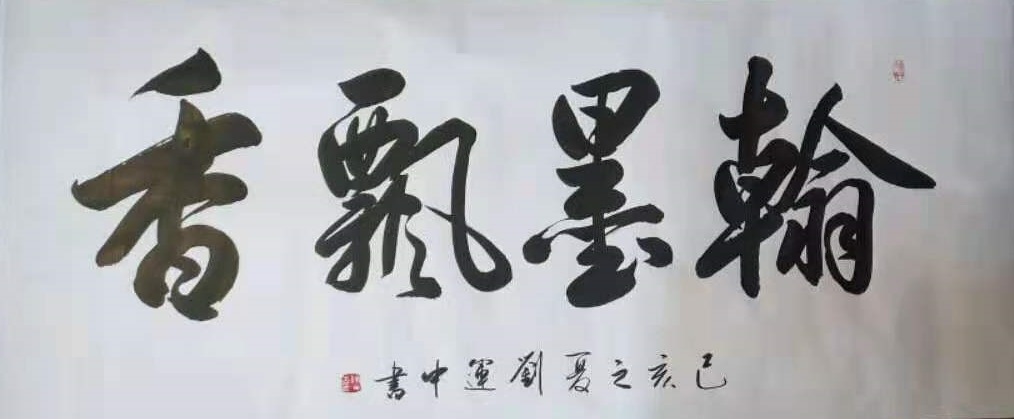 翰墨飄香
己亥之夏劉運中書